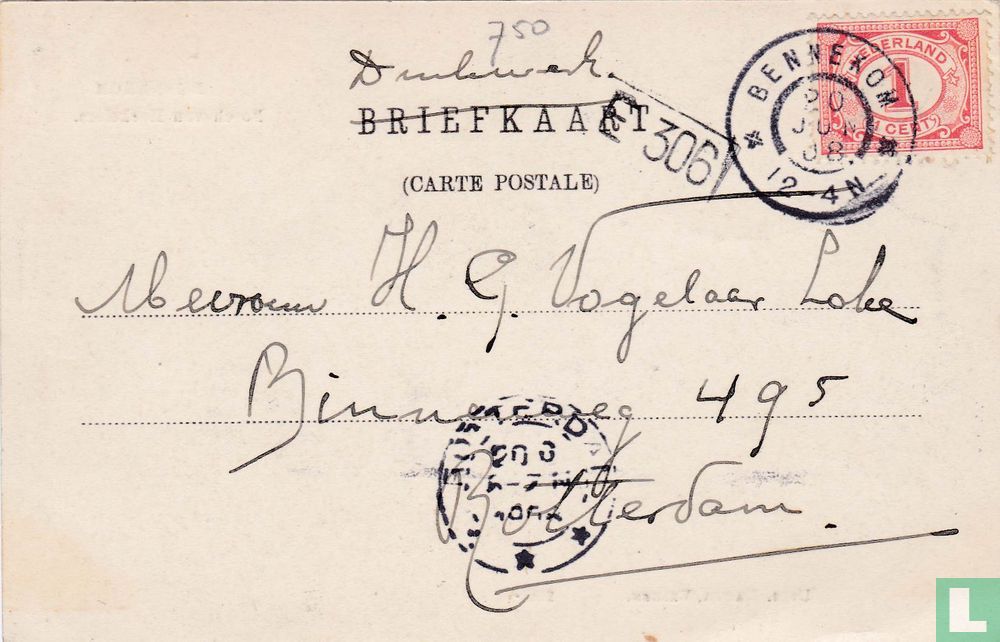 750
Drukwerk.
BRIEFKAART
306
(CARTE POSTALE)
BENNEKOM
20
JUN
08.
12-4N
NEDERLAND
1
CENT
Mevrouw H. G. Vogelaar Loke
Binnenweg 495
Rotterdam.
L